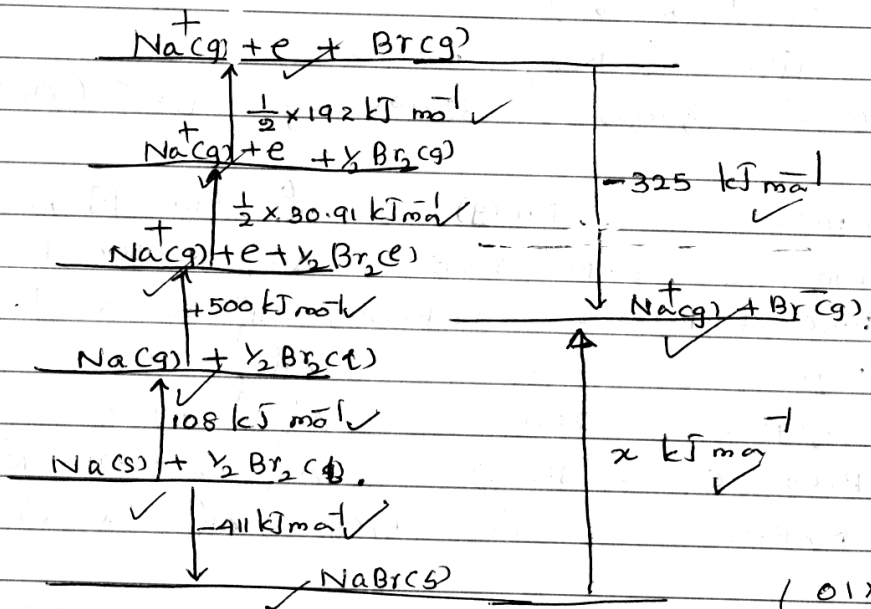 Na⁺(g) + e + Br(g)
½ × 192 kJ mol⁻¹
Na⁺(g) + e + ½ Br₂(g)
-325 kJ mol⁻¹
½ × 30.91 kJ mol⁻¹
Na⁺(g) + e + ½ Br₂(l)
+500 kJ mol⁻¹
Na⁺(g) + Br⁻(g)
Na(g) + ½ Br₂(l)
108 kJ mol⁻¹
x kJ mol⁻¹
Na(s) + ½ Br₂(l)
-411 kJ mol⁻¹
NaBr(s)